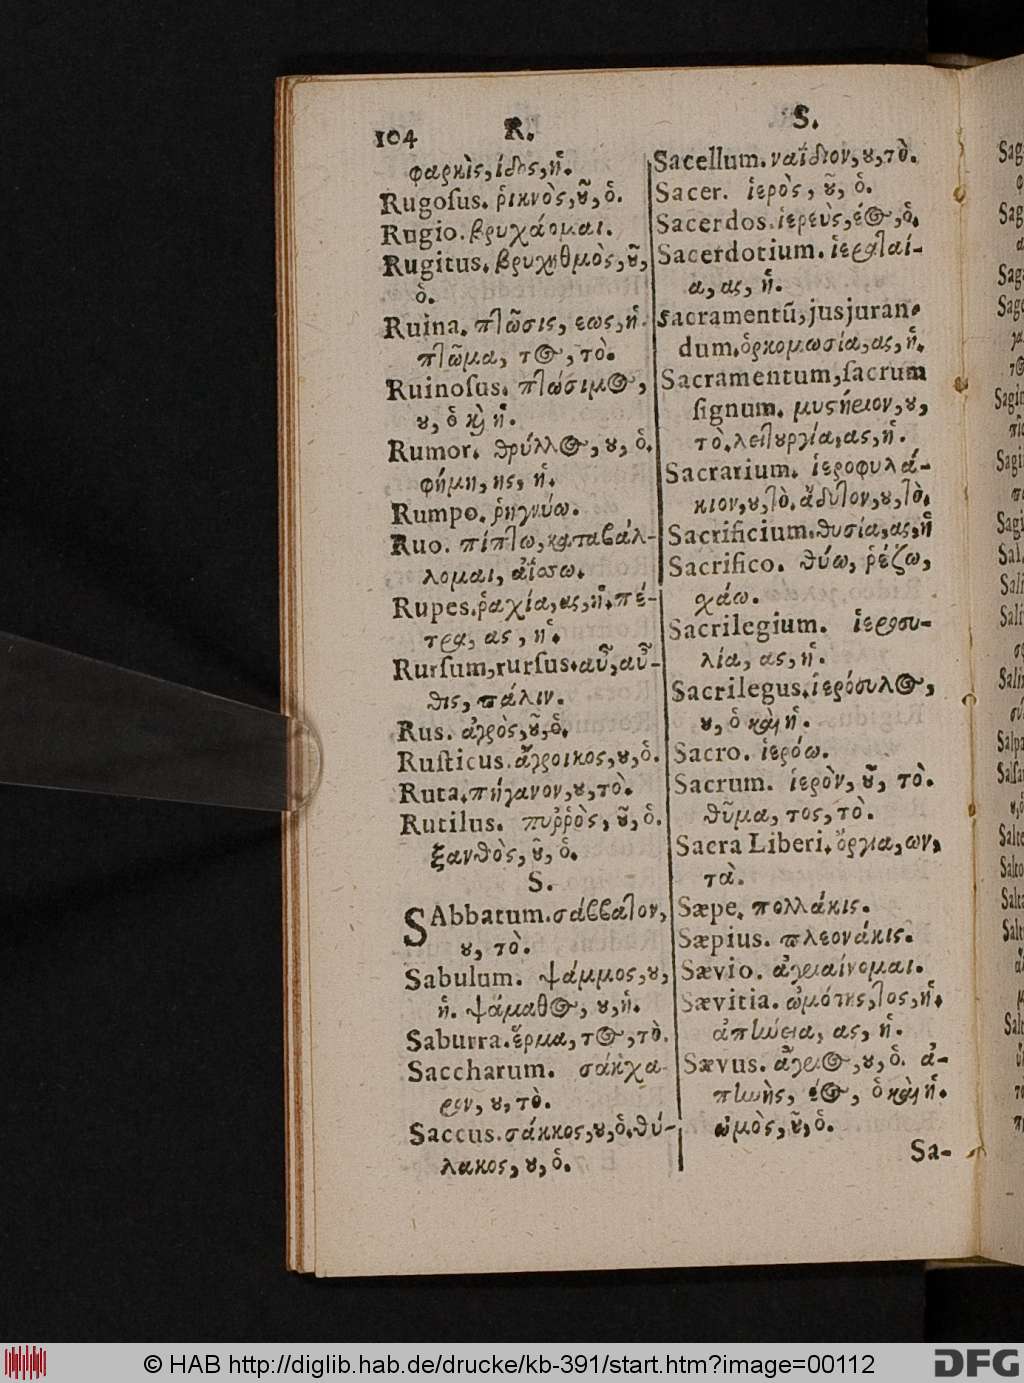 104 R. S.
φαρκὶς, ίδος, ἡ.
Rugoſus. ῥικνὸς, οῦ, ὁ.
Rugio. βρυχάομαι.
Rugitus. βρυχηθμὸς, οῦ,
ὁ.
Ruina. πτῶσις, εως, ἡ.
πτῶμα, τος, τὸ.
Ruinoſus. πτώσιμος,
ου, ὁ καὶ ἡ.
Rumor. θρύλλος, ου, ὁ.
φήμη, ης, ἡ.
Rumpo. ῥηγνύω.
Ruo. πίπτω, καταβάλ-
λομαι, ἀΐσσω.
Rupes. ῥαχία, ας, ἡ. πέ-
τρα, ας, ἡ.
Rurſum, rurſus. αὖ, αὖ-
θις, πάλιν.
Rus. ἀγρὸς, οῦ, ὁ.
Ruſticus. ἄγροικος, ου, ὁ.
Ruta. πήγανον, ου, τὸ.
Rutilus. πυῤῥὸς, οῦ, ὁ.
ξανθὸς, οῦ, ὁ.
S.
SAbbatum. σάββατον,
ου, τὸ.
Sabulum. ψάμμος, ου,
ἡ. ψάμαθος, ου, ἡ.
Saburra. ἕρμα, τος, τὸ.
Saccharum. σάκχα-
ρον, ου, τὸ.
Saccus. σάκκος, ου, ὁ. θύ-
λακος, ου, ὁ.
Sacellum. ναΐδιον, ου, τὸ.
Sacer. ἱερὸς, οῦ, ὁ.
Sacerdos. ἱερεὺς, έος, ὁ.
Sacerdotium. ἱερατεί-
α, ας, ἡ.
Sacramentũ, jusjuran-
dum. ὁρκομωσία, ας, ἡ.
Sacramentum, ſacrum
ſignum. μυστήριον, ου,
τὸ. λειτουργία, ας, ἡ.
Sacrarium. ἱεροφυλά-
κιον, ου, τὸ. ἄδυτον, ου, τὸ.
Sacrificium. θυσία, ας, ἡ
Sacrifico. θύω, ῥέζω,
χάω.
Sacrilegium. ἱεροσυ-
λία, ας, ἡ.
Sacrilegus. ἱερόσυλος,
ου, ὁ καὶ ἡ.
Sacro. ἱερόω.
Sacrum. ἱερὸν, οῦ, τὸ.
θῦμα, τος, τὸ.
Sacra Liberi. ὄργια, ων,
τὰ.
Sæpe. πολλάκις.
Sæpius. πλεονάκις.
Sævio. ἀγριαίνομαι.
Sævitia. ὠμότης, τος, ἡ.
ἀπήνεια, ας, ἡ.
Sævus. ἄγριος, ου, ὁ. ἀ-
πηνὴς, έος, ὁ καὶ ἡ.
ὠμὸς, οῦ, ὁ.
Sa-
© HAB http://diglib.hab.de/drucke/kb-391/start.htm?image=00112
DFG